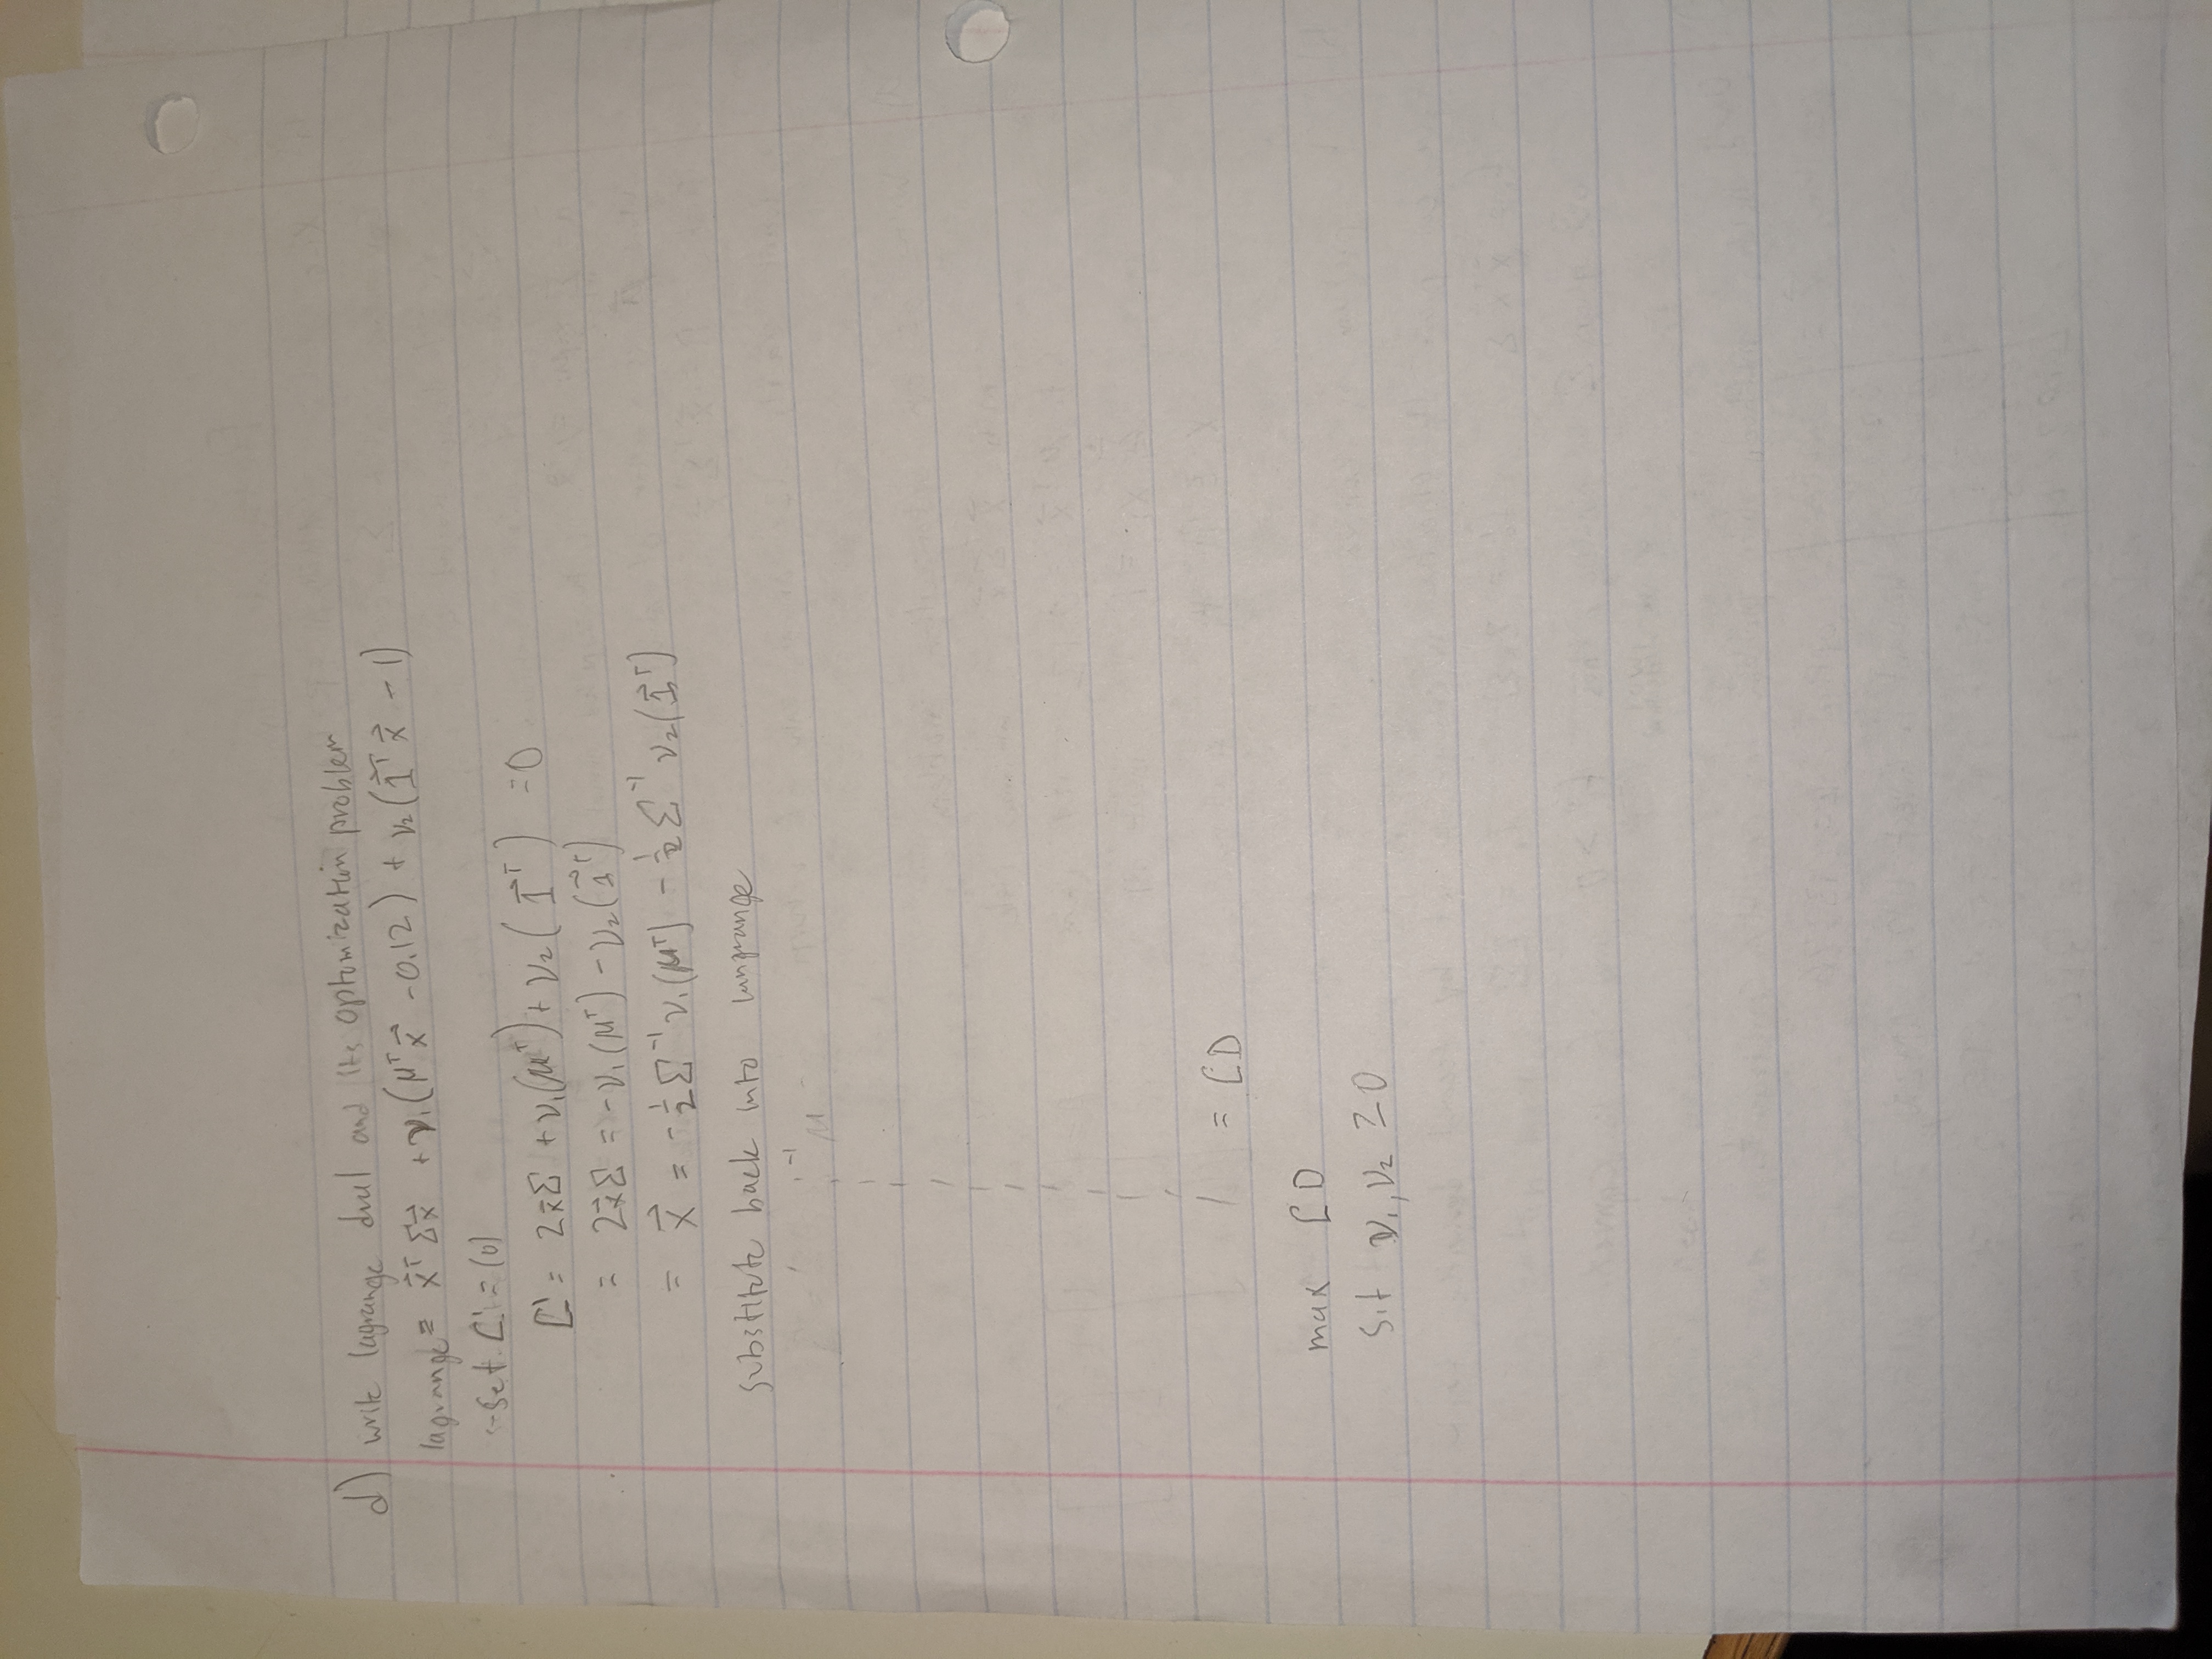 d) write lagrange dual and its optomization problem
lagrange = x⃗ᵀ Σx⃗ + ν₁(μᵀx⃗ - 0.12) + ν₂(1⃗ᵀ x⃗ - 1)
- Set L' = (0)
L' = 2x⃗Σ + ν₁(μᵀ) + ν₂(1⃗ᵀ) = 0
= 2x⃗Σ = -ν₁(μᵀ) - ν₂(1⃗ᵀ)
= x⃗ = -½Σ⁻¹ ν₁(μᵀ) - ½Σ⁻¹ ν₂(1⃗ᵀ)
substitute back into
= LD
max LD
s.t ν₁, ν₂ ≥ 0